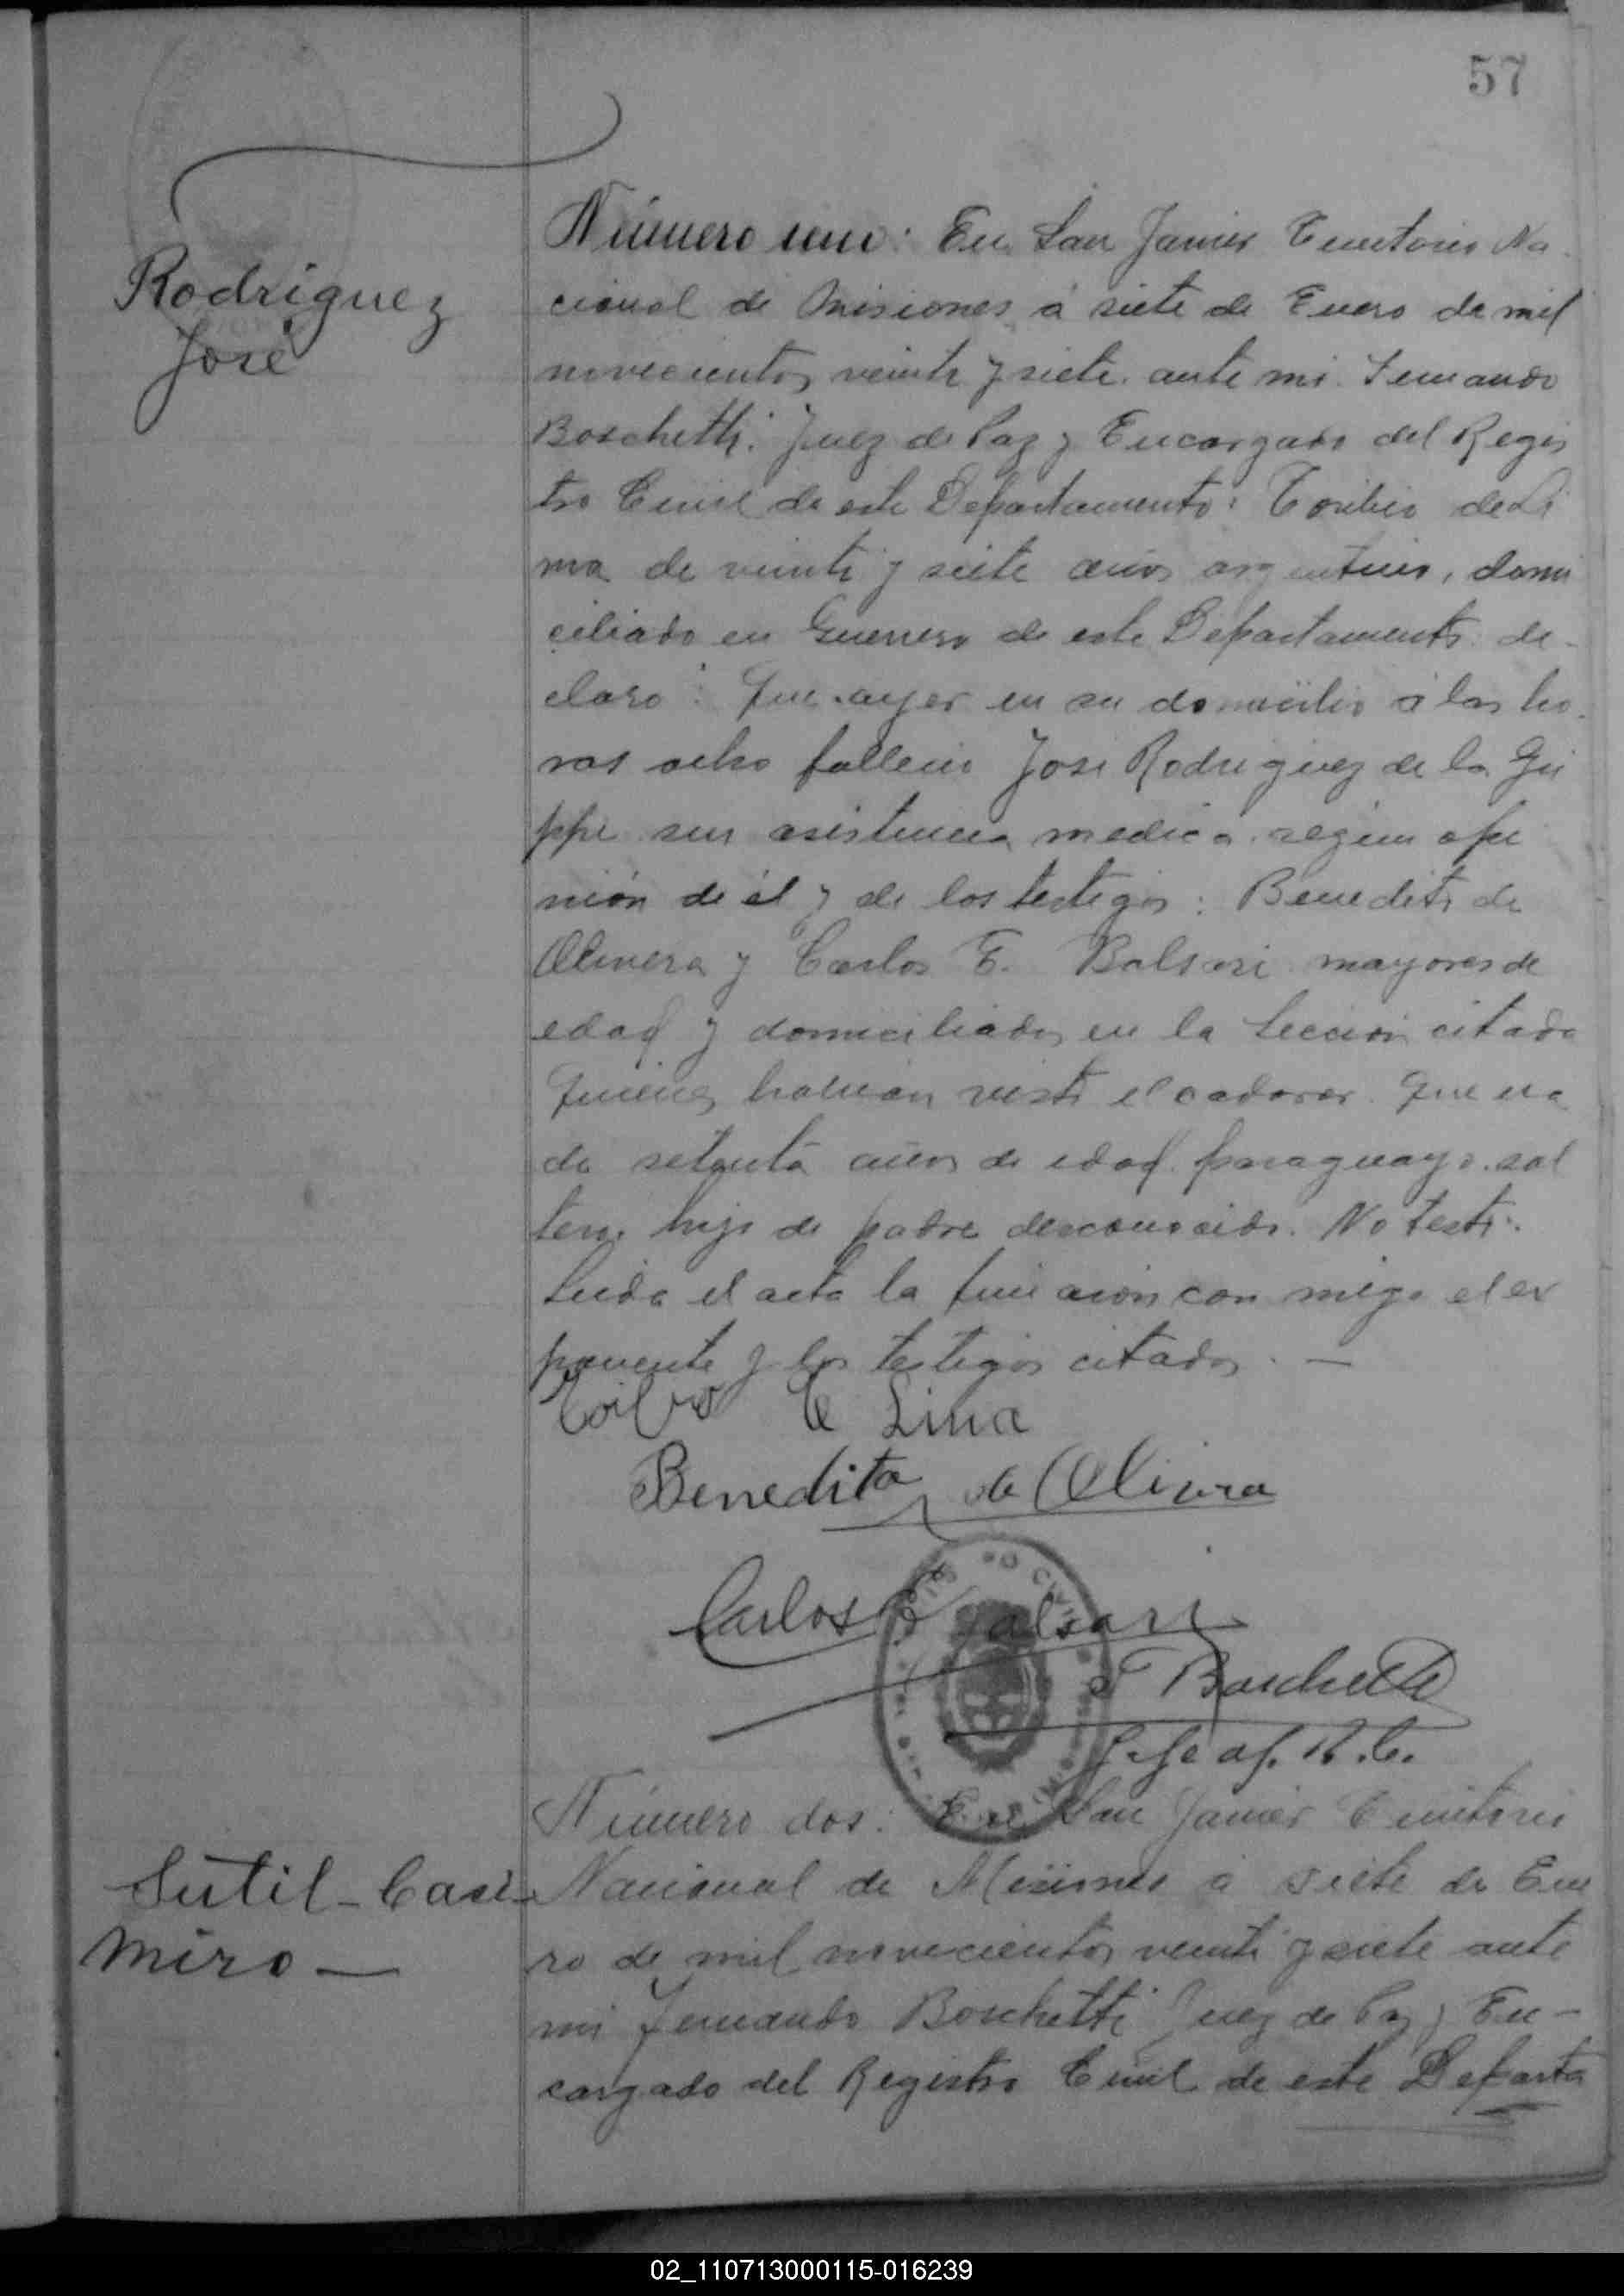 57
Rodriguez
José
Número uno: En San Javier Territorio Na
cional de Misiones á siete de Enero de mil
novecientos veinte y siete. ante mi Fernando
Boschetti. Juez de Paz y Encargado del Regis
tro Civil de este Departamento: Toribio de Li
ma de veinte y siete años argentino, domi
ciliado en Guerrero de este Departamento: de-
claro: Que ayer en su domicilio á las ho
ras ocho fallecio José Rodriguez de la Gri
ppe sin asistencia medica. según opi
nión de él y de los testigos: Benedito de
Olivera y Carlos E. Balsari mayores de
edad y domiciliados en la Sección citada
Quienes habian visto el cadaver. Que era
de setenta años de edad. paraguayo. sol
tero. hijo de padre desconocido. No testó.
Leida el acta la firmaron con migo el ex
ponente y los testigos citados. —
de Lima
Benedito de Olivera
Carlos E Balsari
F Boschetti
Jefe of. R.C.
Número dos: En San Javier Territorio
Sutil - Casi
miro —
Nacional de Misiones á siete de Ene
ro de mil novecientos veinte y siete ante
mi Fernando Boschetti Juez de Paz y En-
cargado del Registro Civil de este Departa
02_110713000115-016239